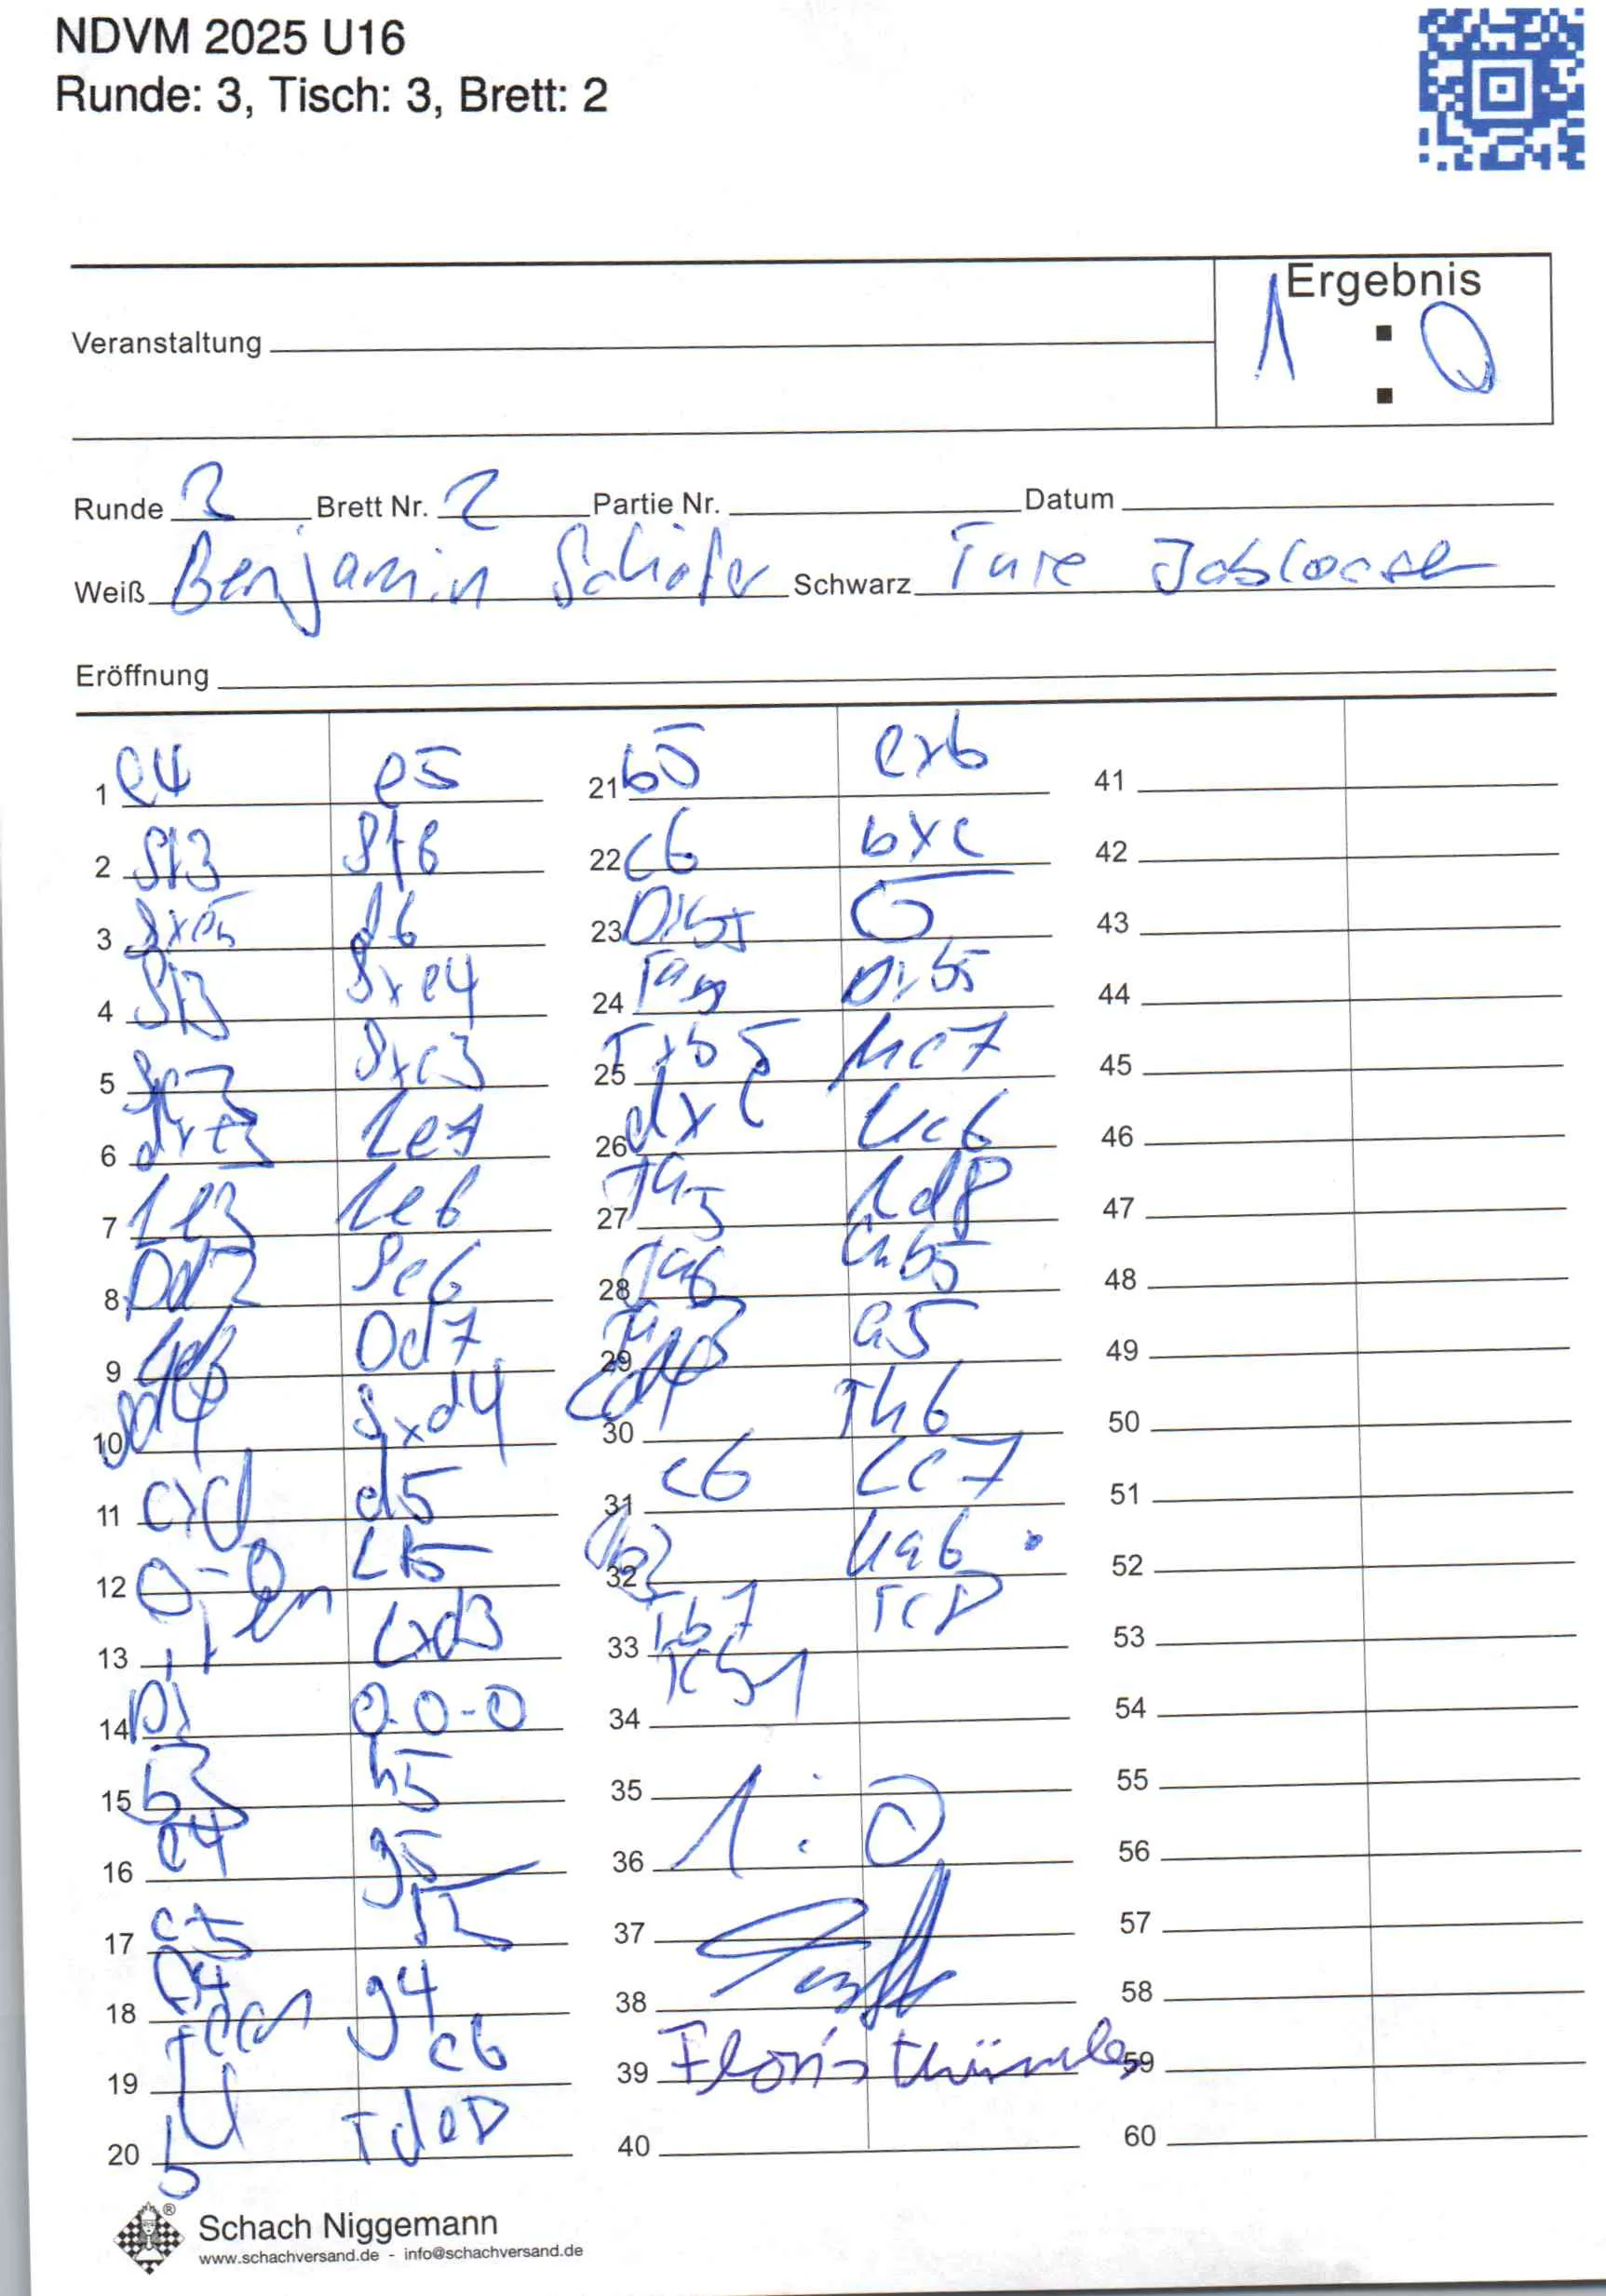 NDVM 2025 U16
Runde: 3, Tisch: 3, Brett: 2
Ergebnis
1 : 0
Veranstaltung
Runde 3 Brett Nr. 2 Partie Nr. Datum
Weiß Benjamin Schäfer Schwarz Ture
Eröffnung
1 e4 e5
2 Sf3 Sf6
3 Sxe5 d6
4 Sf3 Sxe4
5 Sc3 Sxc3
6 dxc3 Le7
7 Le3 Le6
8 Dd2 Sc6
9 Ld3 Dd7
10 Sd4 Sxd4
11 cxd d5
12 0-0 Lf5
13 Lxd3
14 Dx 0-0-0
15 b3 h5
16 c4 g5
17 c5
18 g4
19 c6
20 Tde8
21 b5 cxb
22 c6 bxc
23 Dxb5
24 Dxb5
25 Txb5 Kc7
26 dxc Kc6
27 Ld8
28 Kxb5
29 a5
30 Th6
31 c6 Lc7
32 Ka6
33 Tb7 Tc8
34
35
36 1:0
37
38
39 Floris
40
41
42
43
44
45
46
47
48
49
50
51
52
53
54
55
56
57
58
59
60
Schach Niggemann
www.schachversand.de - info@schachversand.de